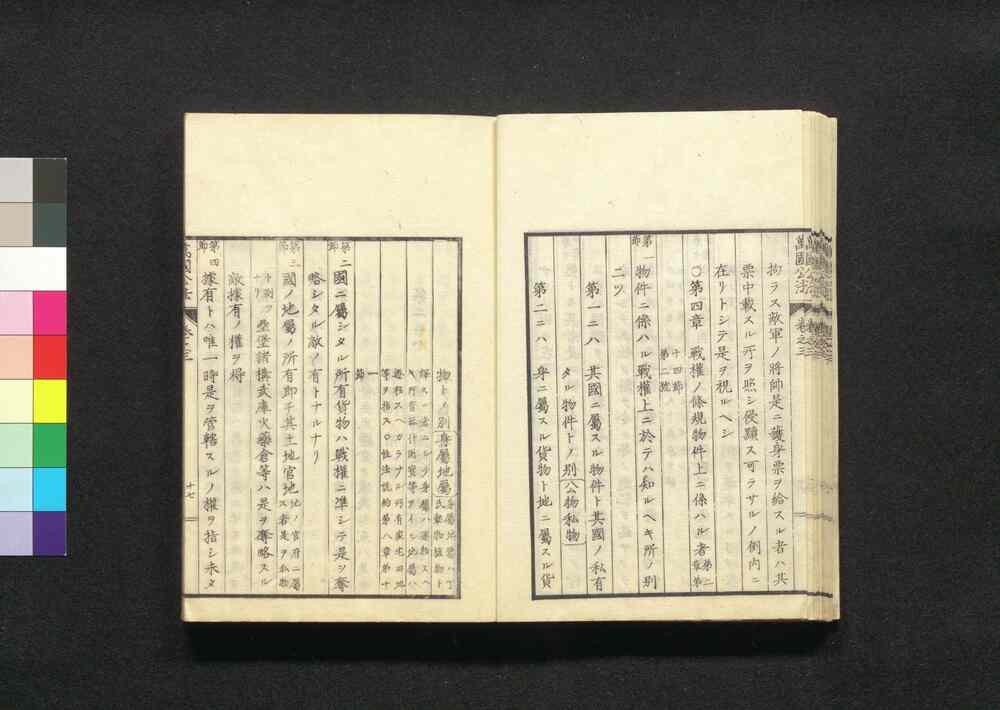 萬國公法 卷之三
拘ラス敵軍ノ將帥是ニ護身票ヲ給スル者ハ其
票中載スル所ヲ照シ侵 ス可ラサルノ例内ニ
在リトシテ是ヲ視ルヘシ
〇第四章 戰權ノ條規物件上ニ係ハル者 第二章第
十四節
第二號
第一節 物件ニ係ハル戰權上ニ於テハ知ルヘキ所ノ別
二ツ
第一ニハ 其國ニ屬スル物件ト其國ノ私有
タル物件トノ別 公物私物
第二ニハ 身ニ屬スル貨物ト地ニ屬スル貨
物トノ別 身屬地屬
等ヲ指ス〇性法 第八章第十
一節
第二節 國ニ屬シタル所有貨物ハ戰權ニ準シテ是ヲ奪
略シタル敵ノ有トナルナリ
第三節 國ノ地屬ノ所有即チ其土地官地 地ノ官府ニ屬スル者是ヲ私物ト別ツナリ
壘堡諸構武庫火藥倉等ハ是ヲ奪略スル
敵據有ノ權ヲ得
第四節 據有トハ唯一時是ヲ管轄スルノ權ヲ指シ未タ
十七